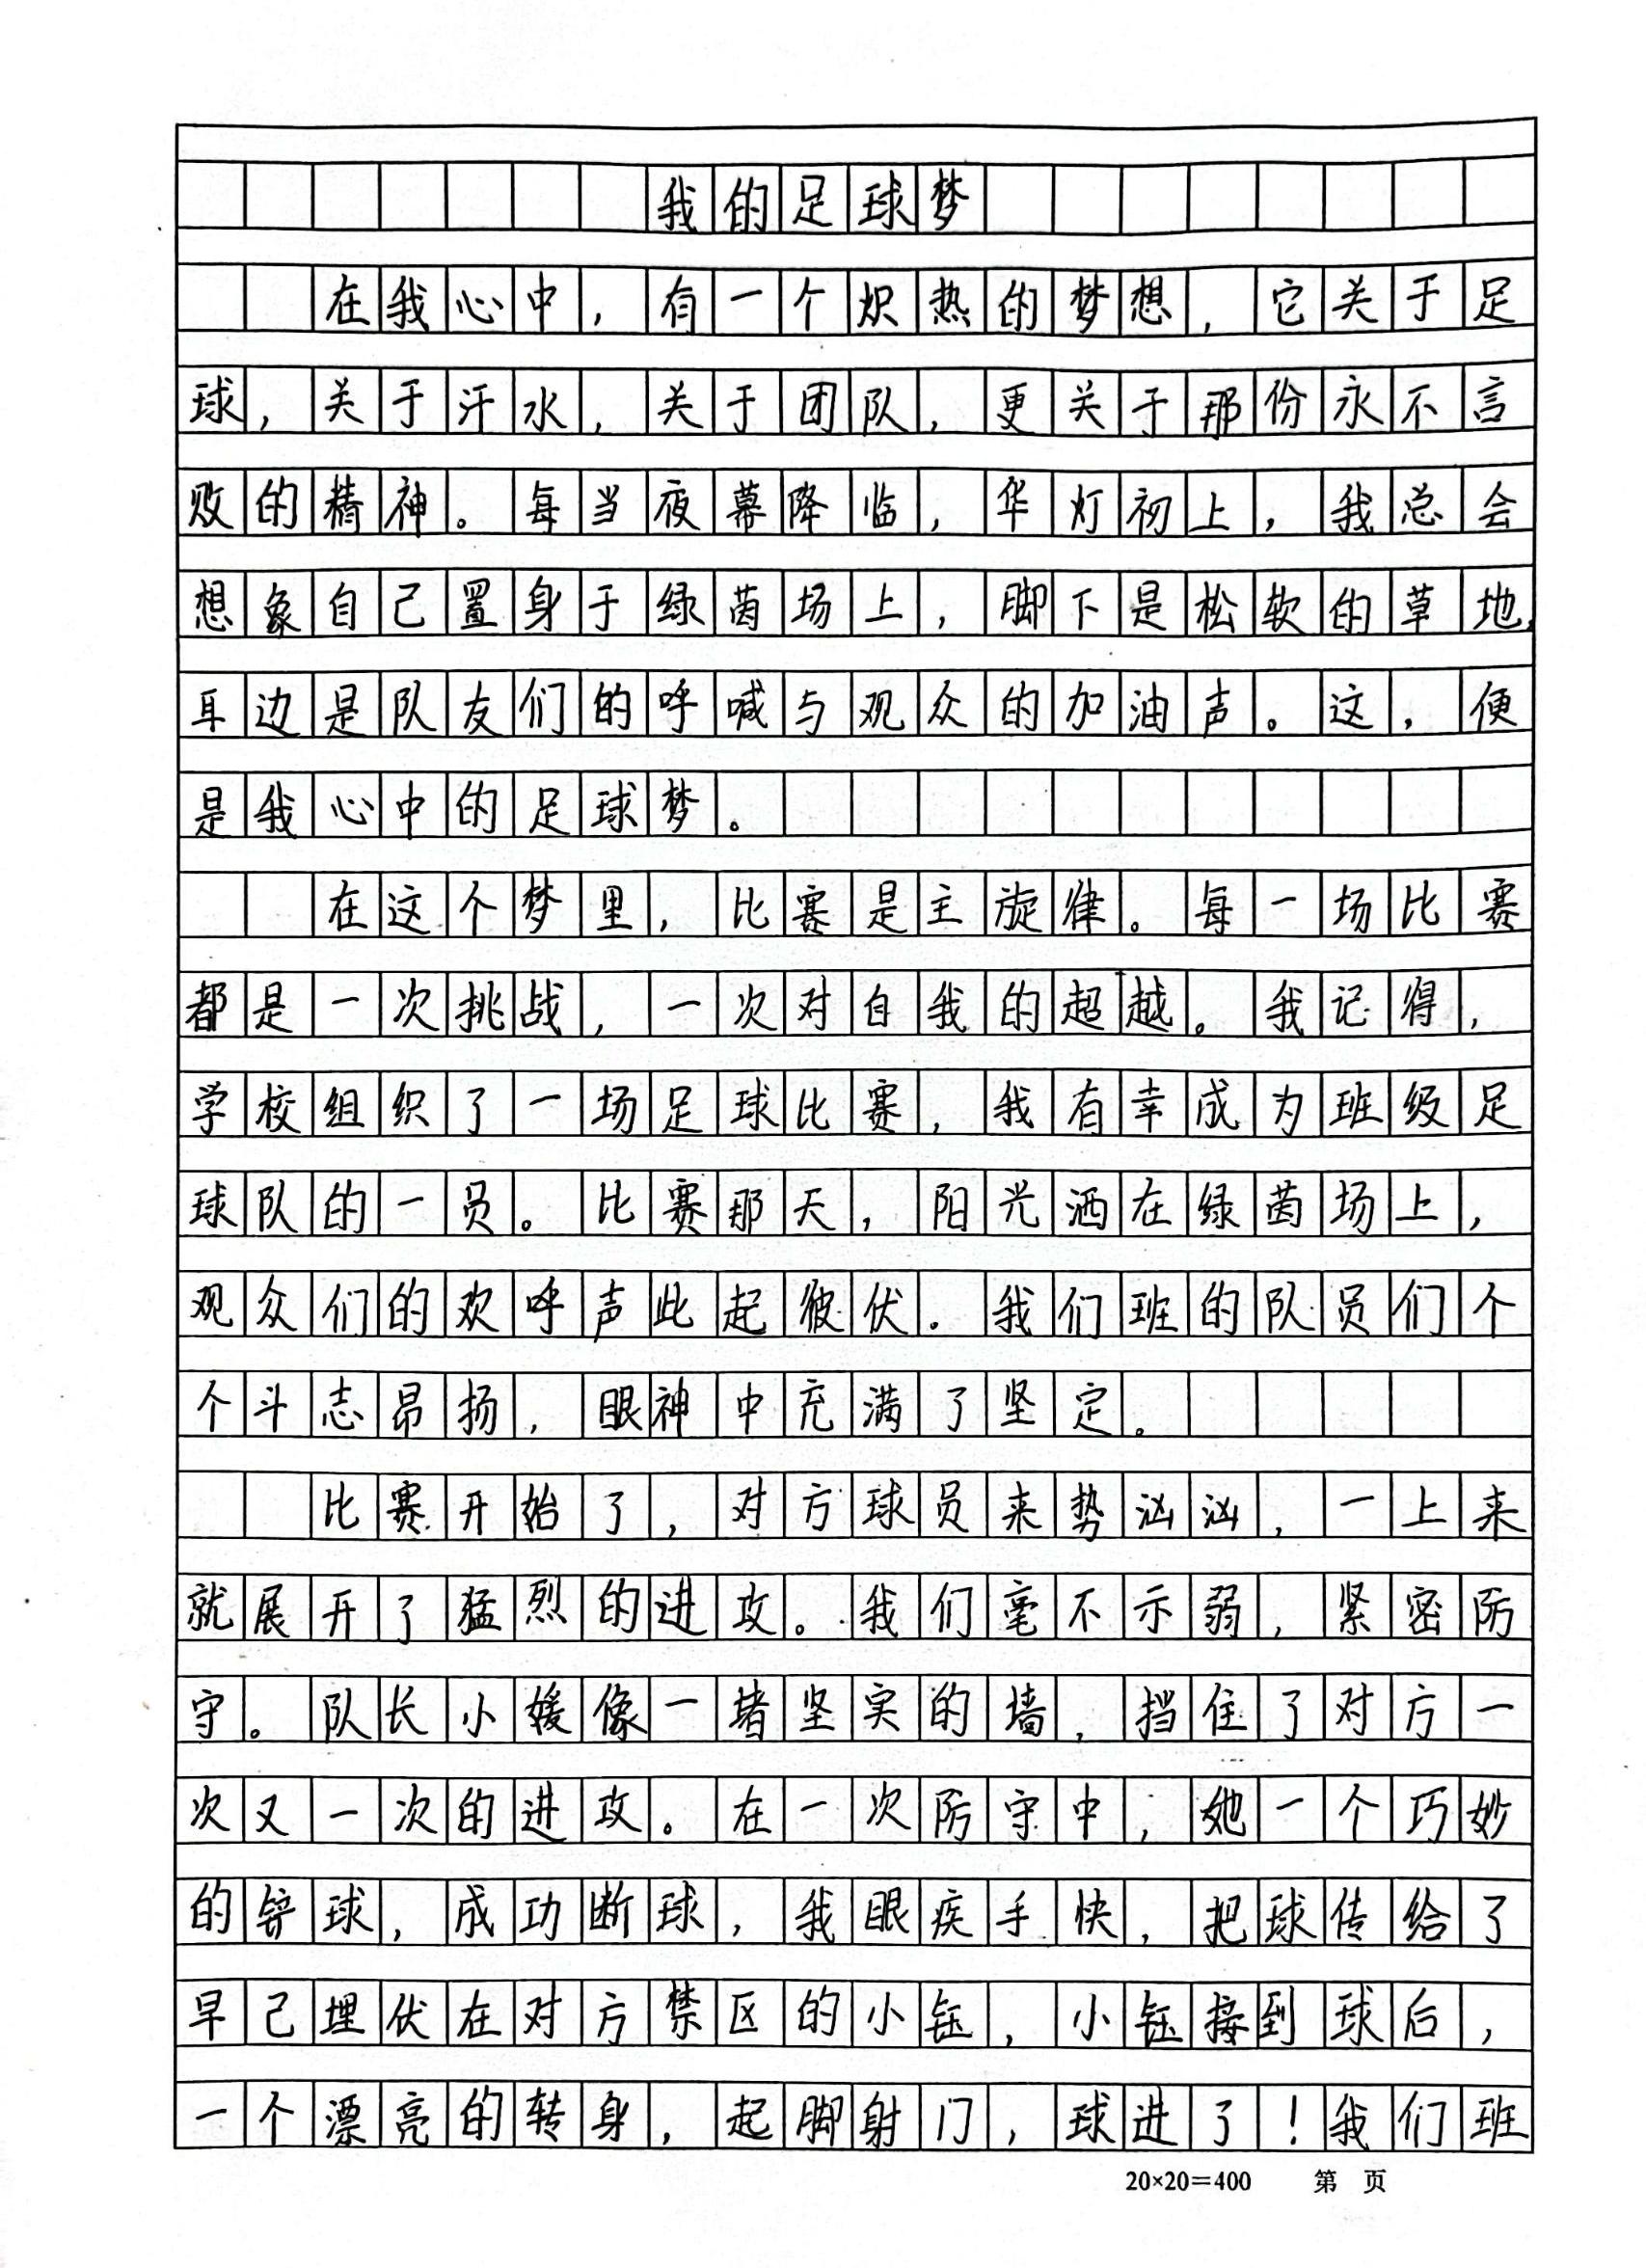 我的足球梦
在我心中，有一个炽热的梦想，它关于足
球，关于汗水，关于团队，更关于那份永不言
败的精神。每当夜幕降临，华灯初上，我总会
想象自己置身于绿茵场上，脚下是松软的草地，
耳边是队友们的呼喊与观众的加油声。这，便
是我心中的足球梦。
在这个梦里，比赛是主旋律。每一场比赛
都是一次挑战，一次对自我的超越。我记得，
学校组织了一场足球比赛，我有幸成为班级足
球队的一员。比赛那天，阳光洒在绿茵场上，
观众们的欢呼声此起彼伏。我们班的队员们个
个斗志昂扬，眼神中充满了坚定。
比赛开始了，对方球员来势汹汹，一上来
就展开了猛烈的进攻。我们毫不示弱，紧密防
守。队长小媛像一堵坚实的墙，挡住了对方一
次又一次的进攻。在一次防守中，她一个巧妙
的铲球，成功断球，我眼疾手快，把球传给了
早已埋伏在对方禁区的小钰，小钰接到球后，
一个漂亮的转身，起脚射门，球进了！我们班
20×20=400 第 页